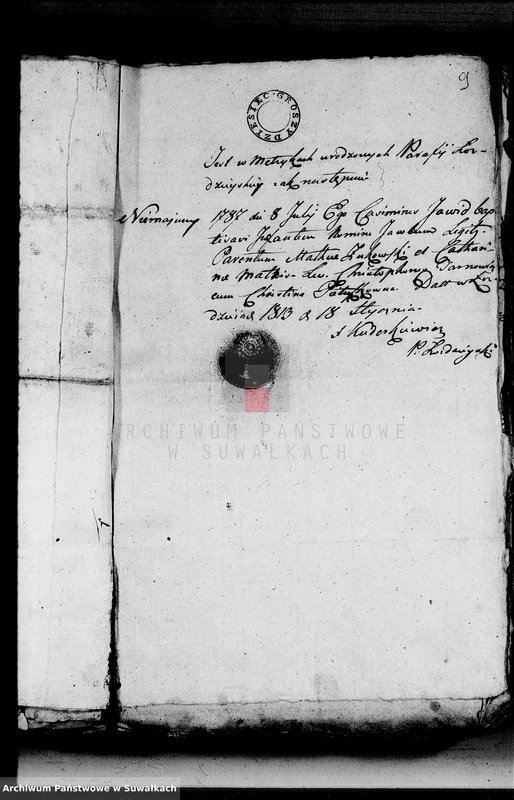 9
DZIESIĘC GROSZY
Jest w Metrykach urodzonych Parafij Łoz-
dzieyskiey jak następuie
Niemajuny 1787 die 8 Julij Ego Casimirus Jawid bap-
tisavi Infantem Nomine Legitt:
Parentum Mathei Żukowski et Cathari-
na Matris Lev. Christophorus Tarnowicz
cum Christina Datt w Łoz-
dzieiach 1813 d 18 Stycznia
J Kuderkiewicz
P. Łozdzieyski
ARCHIWUM PAŃSTWOWE
W SUWAŁKACH
Archiwum Państwowe w Suwałkach